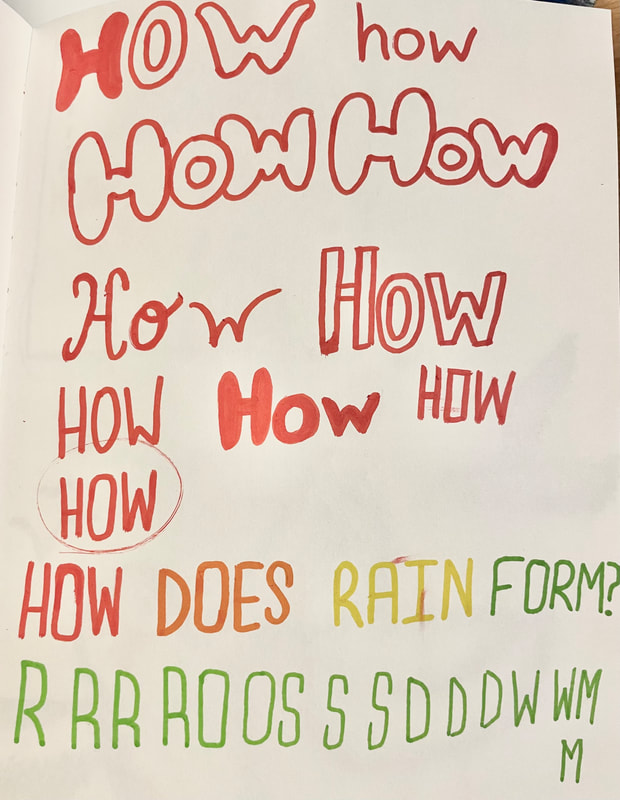 HOW how
How How
How How
HOW How HOW
HOW
HOW DOES RAIN FORM?
R R R R O O S S S D D D W W M
M